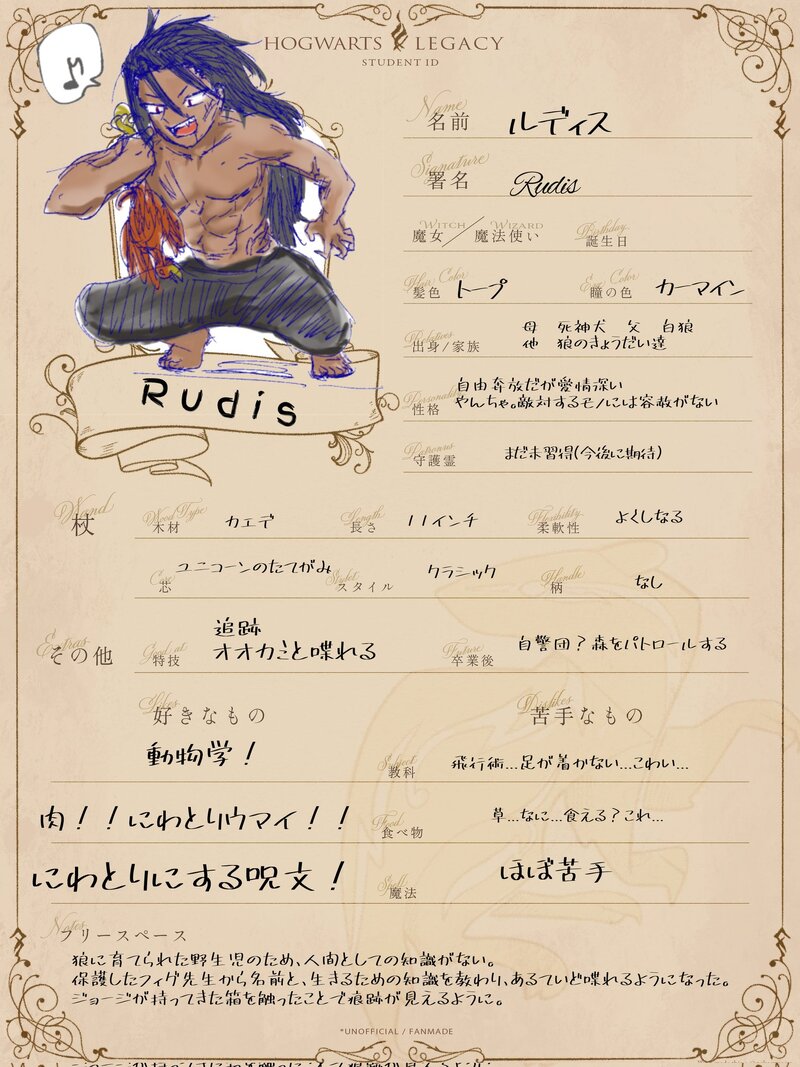 HOGWARTS LEGACY
STUDENT ID
Name
名前 ルディス
Signature
署名 Rudis
WITCH WIZARD
魔女/魔法使い
Birthday
誕生日
Hair Color
髪色 トープ
Eye Color
瞳の色 カーマイン
Relatives
出身/家族
母 死神犬 父 白狼
他 狼のきょうだい達
Personality
性格
自由奔放だが愛情深い
やんちゃ。敵対するモノには容赦がない
Patronus
守護霊 まだ未習得(今後に期待)
Rudis
Wand
杖
Wood Type
木材 カエデ
Length
長さ 11インチ
Flexibility
柔軟性 よくしなる
Core
芯 ユニコーンのたてがみ
スタイル クラシック
Handle
柄 なし
Extras
その他
Good at
特技
追跡
オオカミと喋れる
Future
卒業後 自警団?森をパトロールする
Likes
好きなもの
Dislikes
苦手なもの
動物学!
Subject
教科
飛行術…足が着かない…こわい…
肉!!にわとりウマイ!!
Food
食べ物
草…なに…食える?これ…
にわとりにする呪文!
Spell
魔法
ほぼ苦手
Notes
フリースペース
狼に育てられた野生児のため、人間としての知識がない。
保護したフィグ先生から名前と、生きるための知識を教わり、あるていど喋れるようになった。
ジョージが持ってきた箱を触ったことで痕跡が見えるように。
*UNOFFICIAL / FANMADE